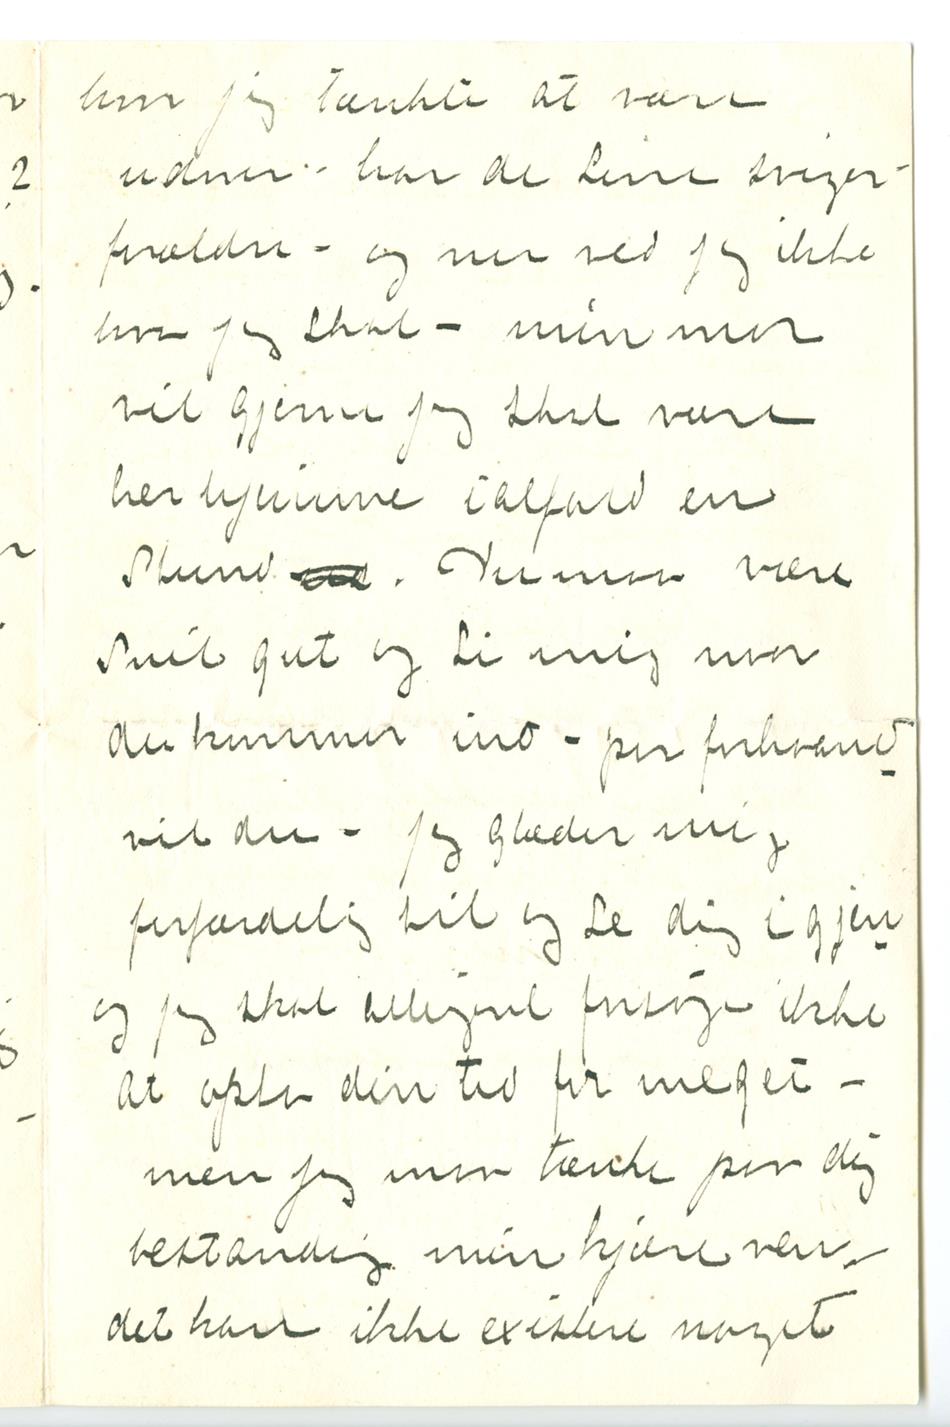 hvor jeg tænkte at være
– har de sine sviger-
forældre – og nu ved jeg ikke
hva jeg skal – min mor
vil gjerne jeg skal være
her hjemme ialfald en
stund. Du maa være
snil gut og si mig naar
du kommer ind – paa forhaand
vil du – jeg glæder mig
forfærdelig til og se dig igjen
og jeg skal alligevel forsøge ikke
at opta din tid for meget –
men jeg maa tænke paa dig
bestandig min kjære ven –
det kan ikke existere noget